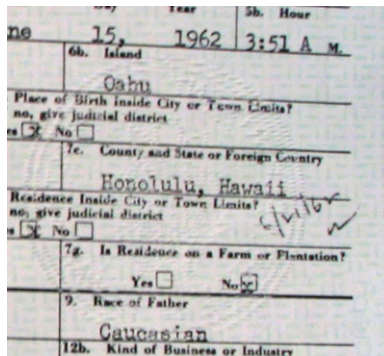 Day Year 5b. Hour
ne 15, 1962 3:51 A M.
6b. Island
Oahu
Place of Birth Inside City or Town Limits?
no, give judicial district
es X No
7c. County and State or Foreign Country
Honolulu, Hawaii
Residence Inside City or Town Limits?
no, give judicial district
es X No
7g. Is Residence on a Farm or Plantation?
Yes No X
9. Race of Father
Caucasian
12b. Kind of Business or Industry